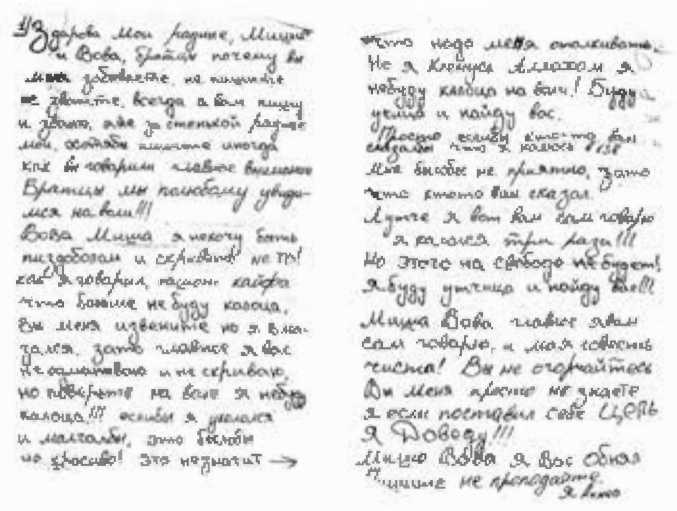 Здарова мои родные, Миша
и Вова, братцы почему вы
меня забываете, не пишите
не звоните, всегда я вам пишу
и звоню, я же за стенькой родные
мои, хотябы пишите иногда
как вы говорили главное внимание
Братцы мы полюбому увиди-
мся на воли!!!
Вова Миша я нехочу быть
пиздоболом и скрывать! не то!
как я говорил, кайфа
что больше не буду колоца,
вы меня извените но я вма-
зался, зато главное я вас
не обманываю и не скриваю,
но поверьте на воле я небуду
колоца!!! еслибы я укололся
и малчалбы, это былобы
не красиво! Это незначит →
что надо меня отталкивать.
Но я клянусь Аллахом я
небуду колоца на воли! Буду
и найду вас.
Просто еслибы ктото вам
сказалбы что я колюсь
мне былобы не приятно, зато
что ктото вам сказал.
Лутче я вот вам сам говорю
я кололся три раза!!!
Но этого на свободе не будет!
Я буду и найду вас!!!
Миша Вова главное я вам
сам говорю, и моя совесть
чиста! Вы не огорчайтесь
Вы меня просто не знаете
я если поставил себе Цель
Я Доведу!!!
Мишо Вова я Вас Обнял
Пишите не пропадайте.
Я